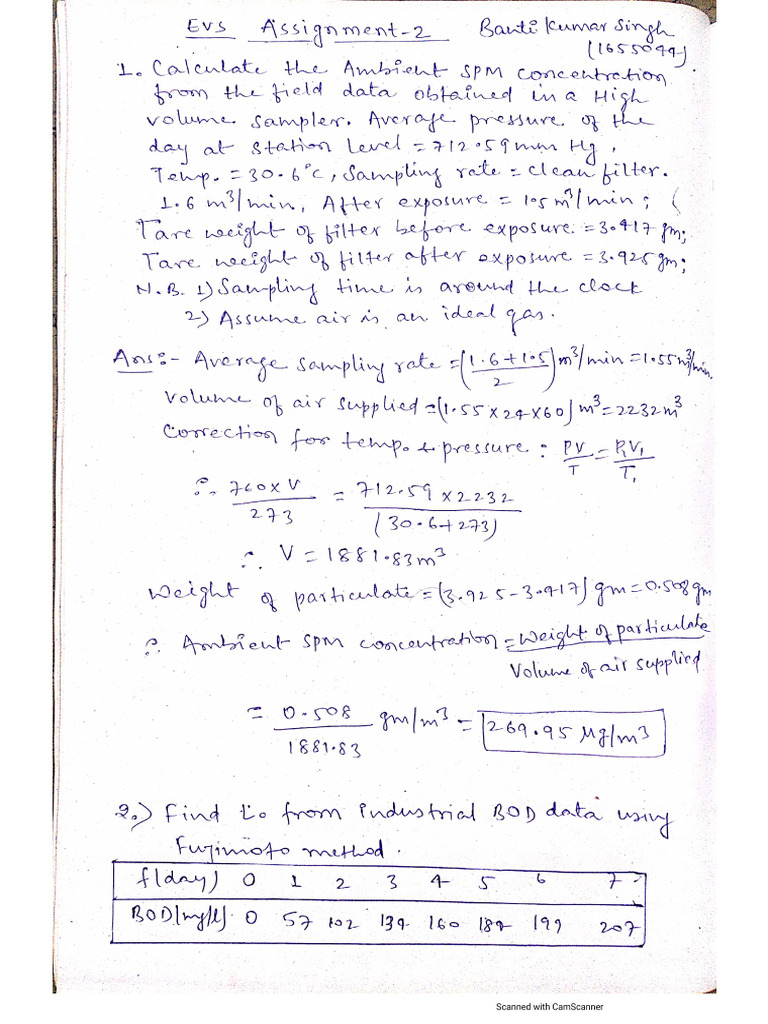 EVS Assignment-2 Banti Kumar Singh
(1655044)
1. Calculate the Ambient SPM concentration
from the field data obtained in a High
volume sampler. Average pressure of the
day at station Level = 712.59 mm Hg,
Temp. = 30.6°C, Sampling rate = clean filter.
1.6 m³/min, After exposure = 1.5 m³/min;
Tare weight of filter before exposure = 3.417 gm;
Tare weight of filter after exposure = 3.925 gm;
N.B. 1) Sampling time is around the clock
2) Assume air is an ideal gas.
Ans:- Average sampling rate = (1.6+1.5/2) m³/min = 1.55 m³/min.
Volume of air supplied = (1.55 x 24 x 60) m³ = 2232 m³
Correction for temp. & pressure : PV/T = P₁V₁/T₁
∴ 760 x V / 273 = 712.59 x 2232 / (30.6+273)
∴ V = 1881.83 m³
Weight of particulate = (3.925-3.417) gm = 0.508 gm
∴ Ambient SPM concentration = Weight of particulate / Volume of air supplied
= 0.508 / 1881.83 gm/m³ = 269.95 μg/m³
2.) Find L₀ from industrial BOD data using
Fujimoto method.
t(day) 0 1 2 3 4 5 6 7
BOD(mg/l) 0 57 102 134 160 184 199 207
Scanned with CamScanner